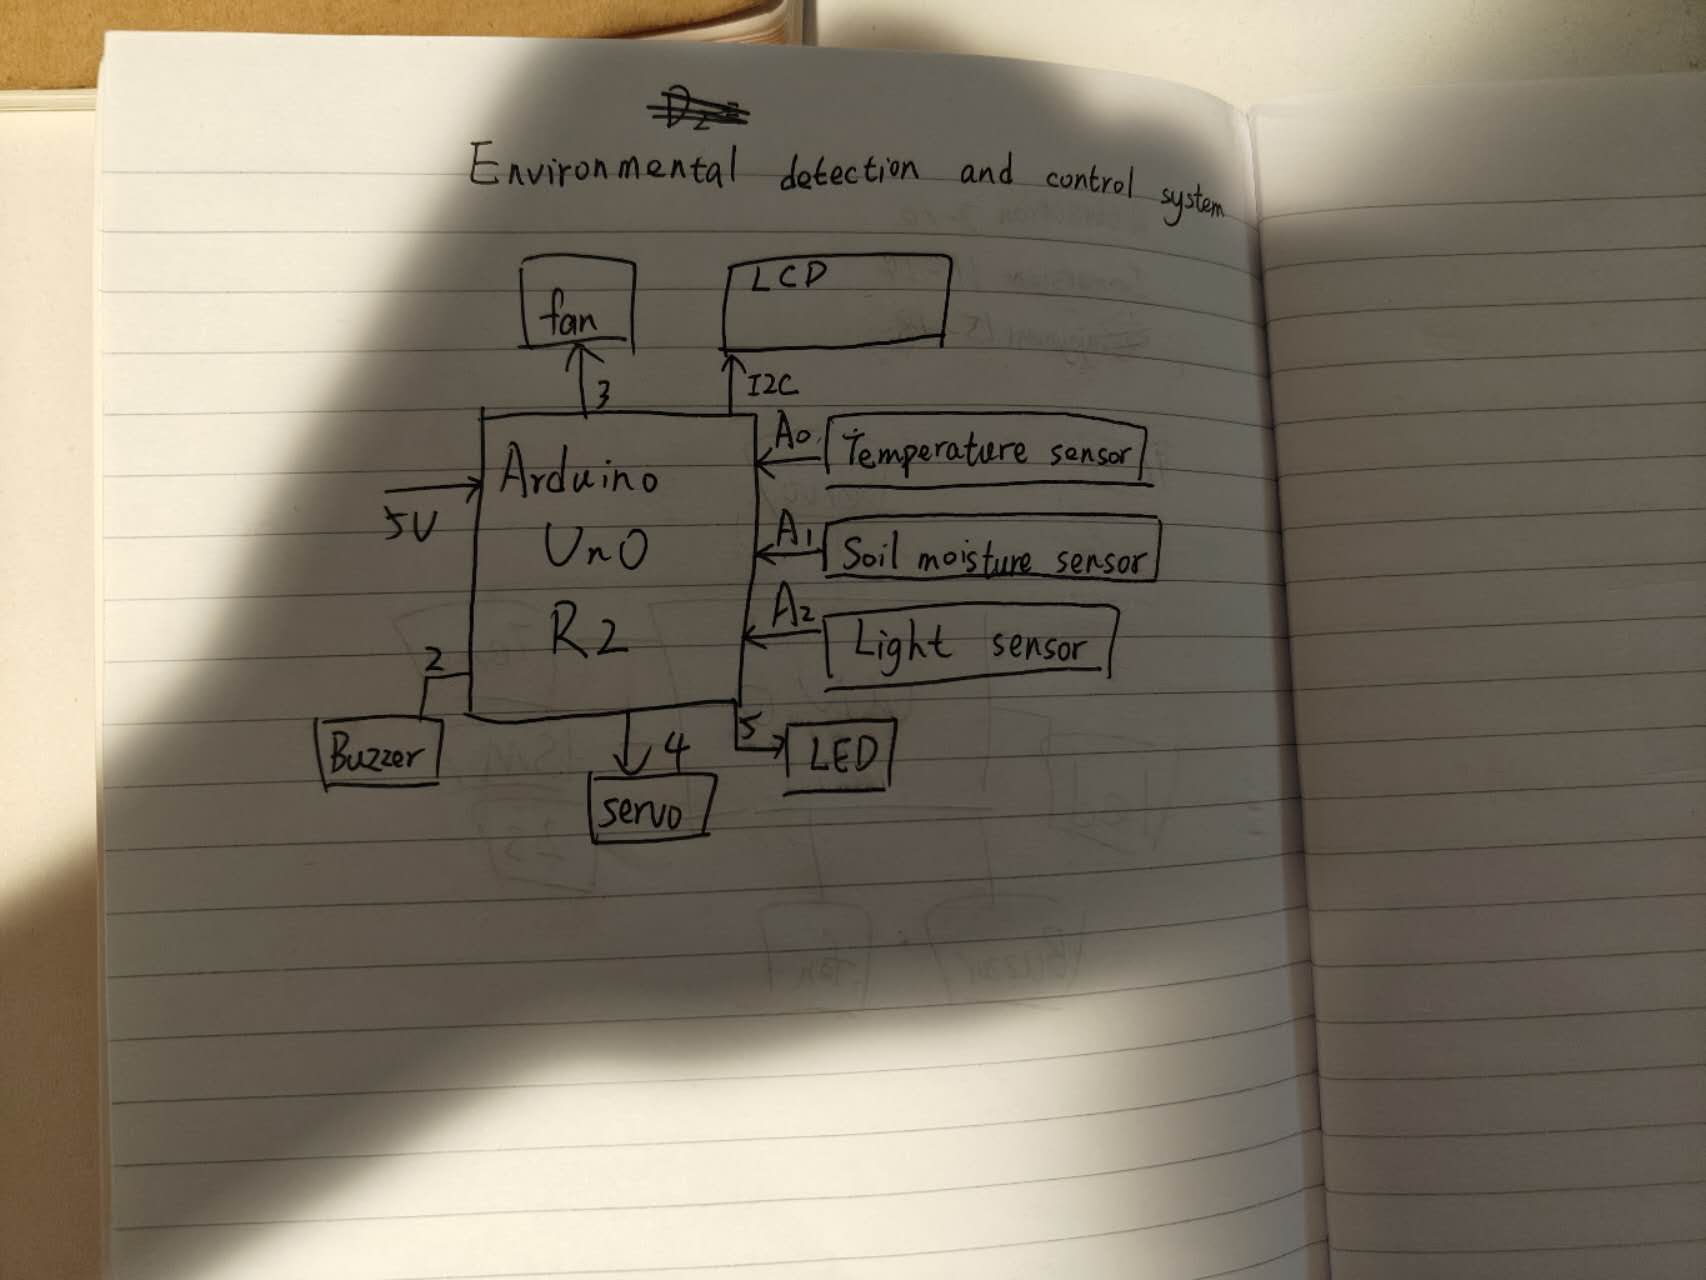 Environmental detection and control system
fan
LCD
3
I2C
Arduino
Uno
R2
5V
A0
Temperature sensor
A1
Soil moisture sensor
A2
Light sensor
2
Buzzer
4
servo
5
LED